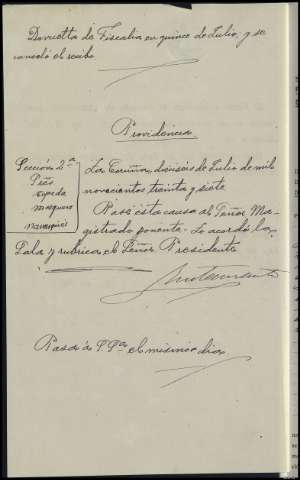 Devuelta de Fiscalia en quince de Julio, y se
canceló el recibo
Providencia
Sección 2ª
Piñó
Cepeda
Marquina
La Coruña, dieciseis de Julio de mil
novecientos treinta y siete
Pase esta causa al Señor Ma-
gistrado ponente. Lo acordó la
Sala y rubrica el Señor Presidente
Pasa á P. Pte el mismo dia